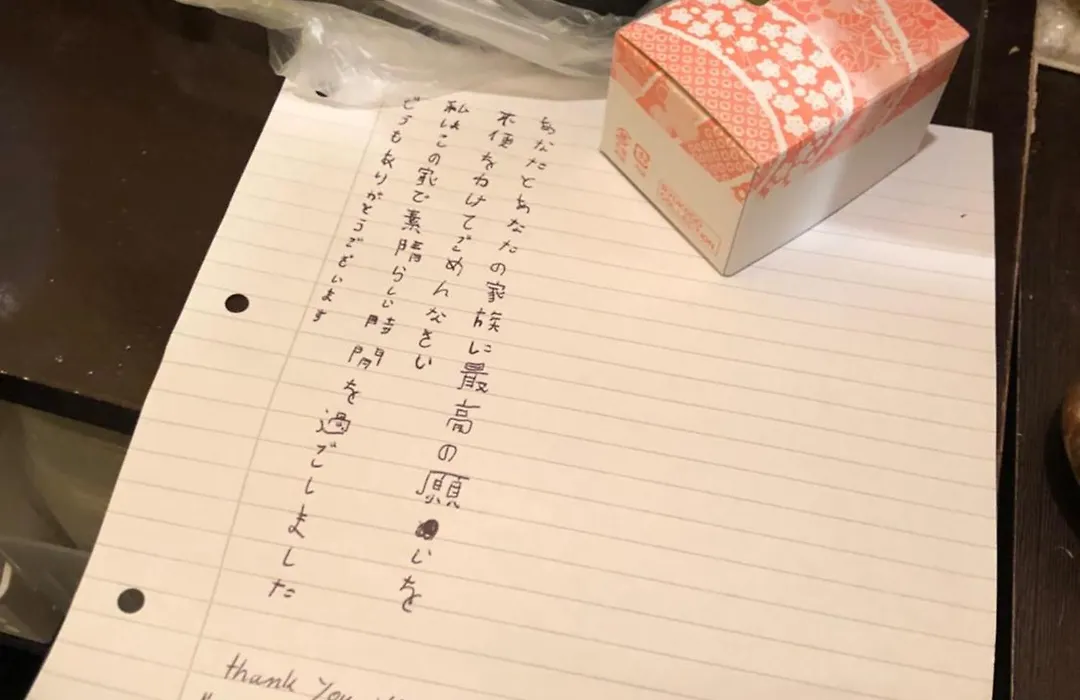 あなたとあなたの家族に最高の願いを
不便をかけてごめんなさい
私はこの家で素晴らしい時間を過ごしました
どうもありがとうございます
thank You